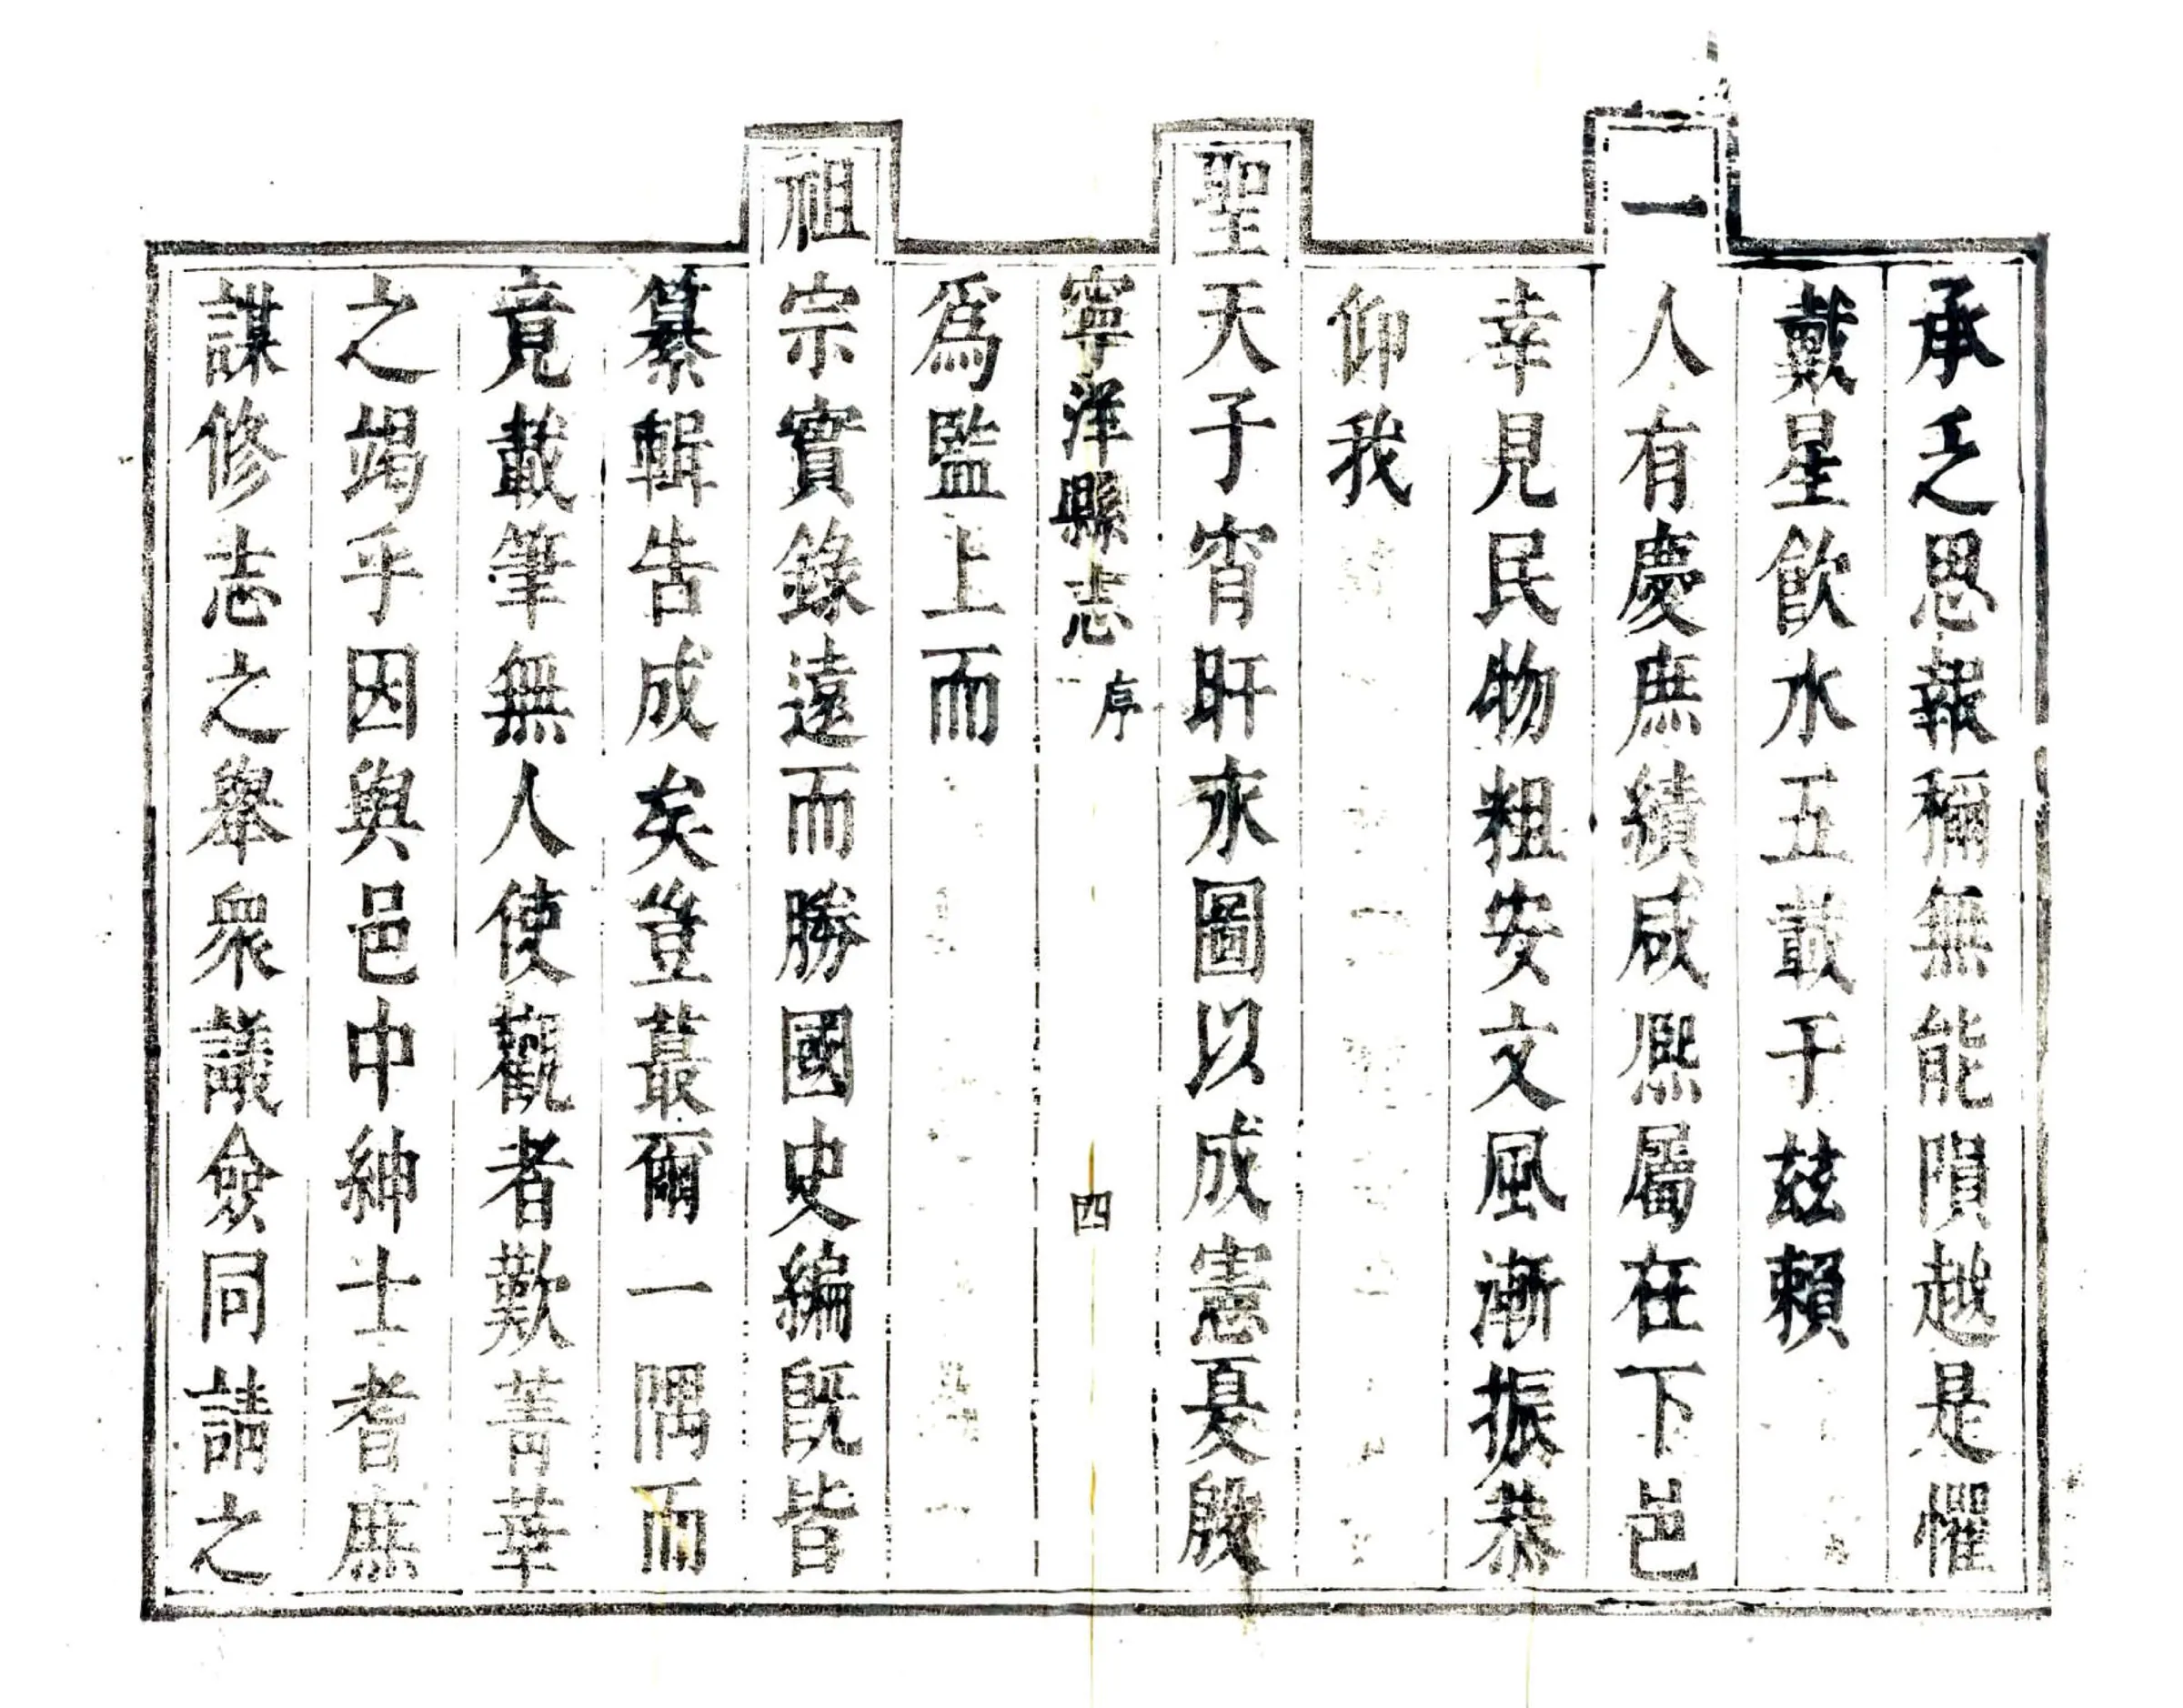 承乏思報稱無能隕越是懼
戴星飲水五載于茲賴
一人有慶庶績咸熈屬在下邑
幸見民物粗安文風漸振恭
仰我
聖天子宵旰永圖以成憲夏殷
寧洋縣志 序 四
爲監上而
祖宗實錄遠而勝國史編旣皆
纂輯告成矣豈蕞爾一隅而
竟載筆無人使觀者歎菁華
之竭乎因與邑中紳士耆庶
謀修志之舉衆議僉同請之